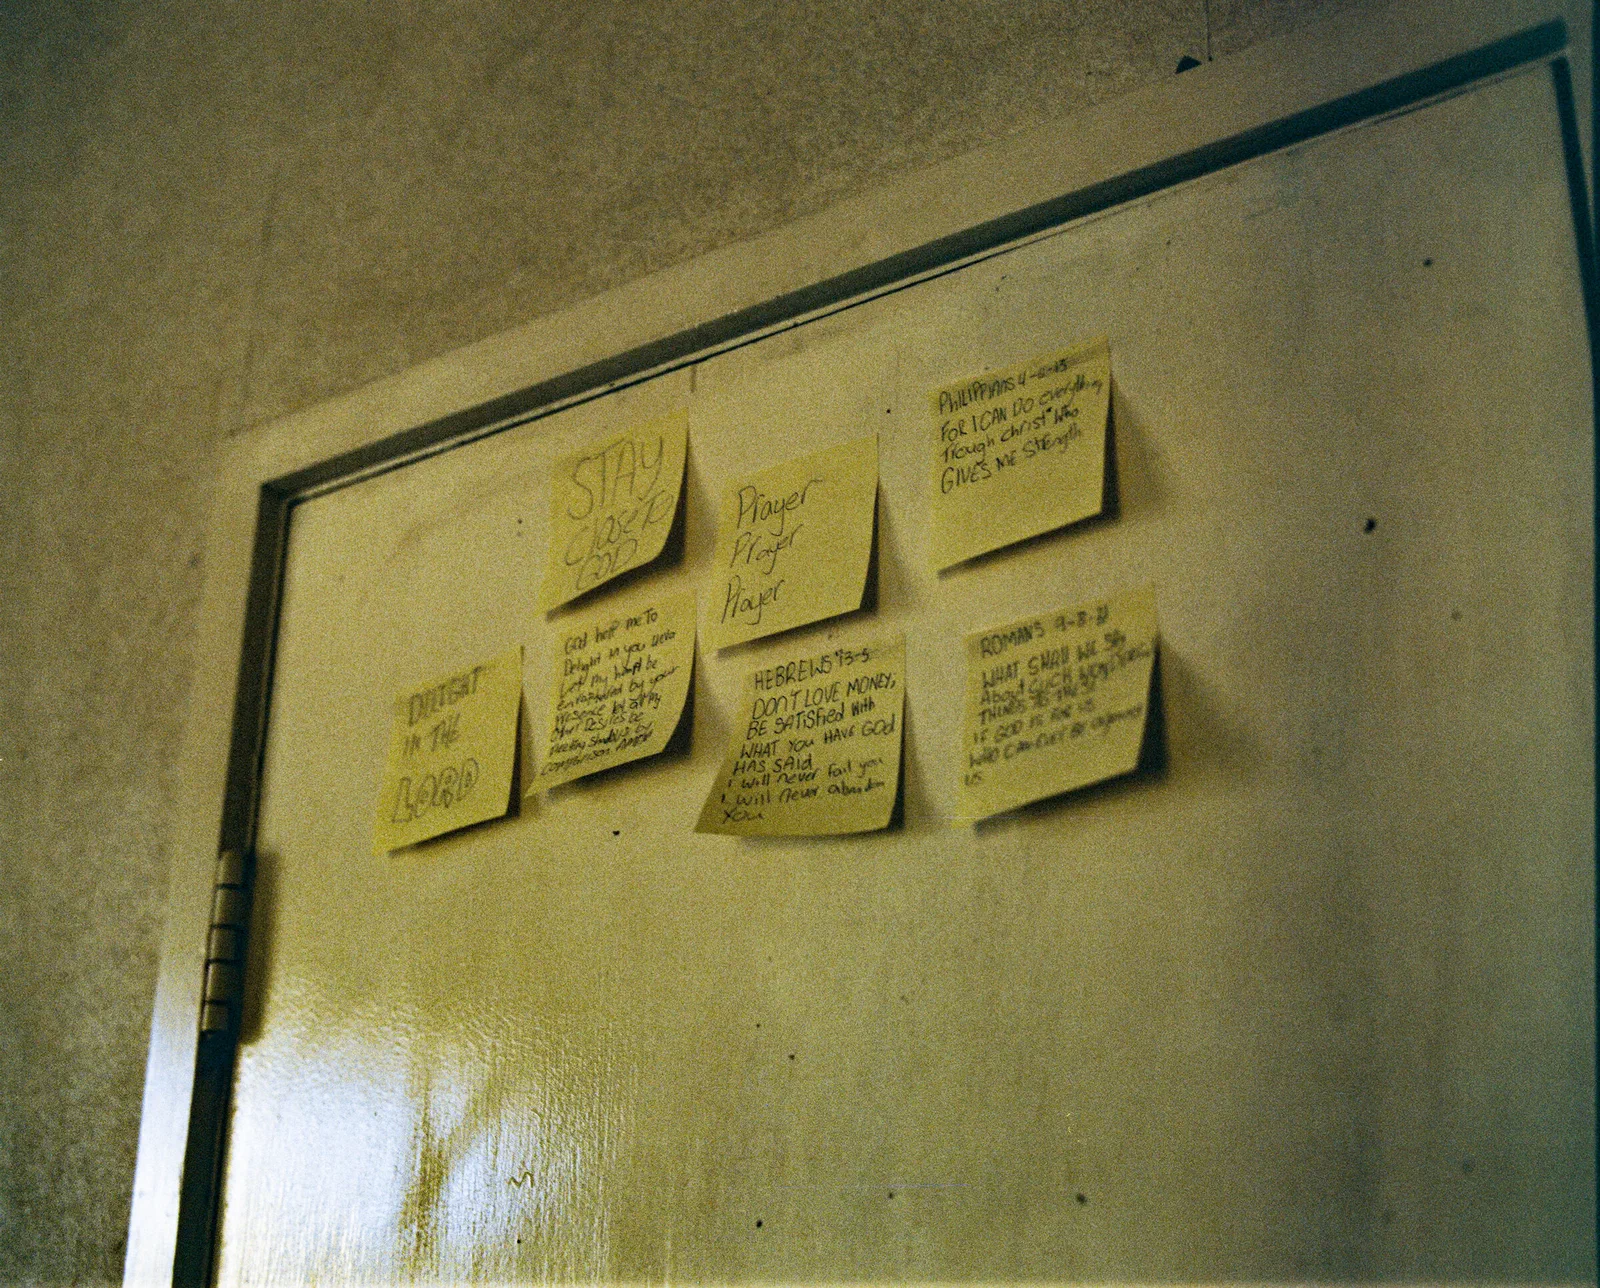 STAY
Close To
GOD
Prayer
Prayer
Prayer
PHILIPPIANS 4-6-13
FOR I CAN DO everything
Trough Christ Who
GIVES ME Strength
DELIGHT
IN THE
LORD
God help me To
Delight in you
Let my heart be
by your
Presence
other Desires be
by
comparison AMEN
HEBREWS 13-5
DON'T LOVE MONEY,
BE SATISFied With
WHAT YOU HAVE GOD
HAS SAid
I will never Fail you
I will never abandon
You
ROMANS 9-8-31
WHAT SHALL WE SAy
About SUCH WONDERFUL
THINGS AS THESE
IF GOD IS FOR US
WHO CAN EVER BE against
US